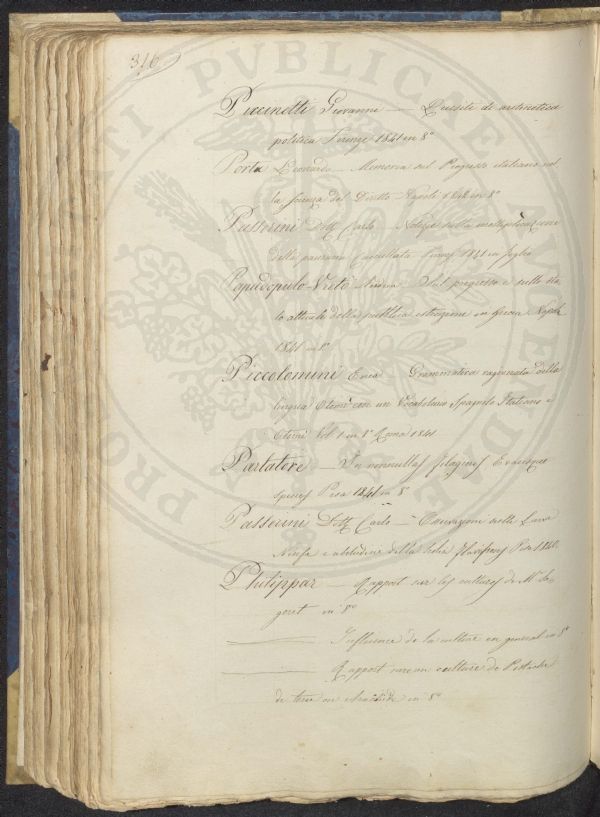 316
Piccinetti Giovanni — Quesiti di aritmetica
politica Firenze 1841 in 8°
Porta Leonardo — Memoria sul Progresso italiano nel
la scienza del Diritto Napoli 1840 in 8°
Passerini Dott. Carlo — Notizie sulla moltiplicazione
della Cucullata Firenze 1841 in foglio
Papadopulo-Vretò Andrea Sul progresso e sullo sta-
to attuale della pubblica istruzione in Grecia Napoli
1841 in 8°
Piccolomini Enea Grammatica ragionata della
lingua Otomì con un Vocabolario Spagnolo Italiano e
Otomì Vol 1 in 8° Roma 1841
Parlatore — In nonnullas filagines Evacesque
species Pisa 1841 in 8°
Passerini Dott. Carlo — Osservazioni sulle Larve
Ninfe e abitudini della Scolia flavifrons Pisa 1840
Philippar — Rapport sur les cultures de Mr
in 8°
— Influence de la culture en general in 8°
— Rapport culture de Pistache
de terre ou Arachide in 8°
PROSPERITATI PUBLICAE AUGENDAE